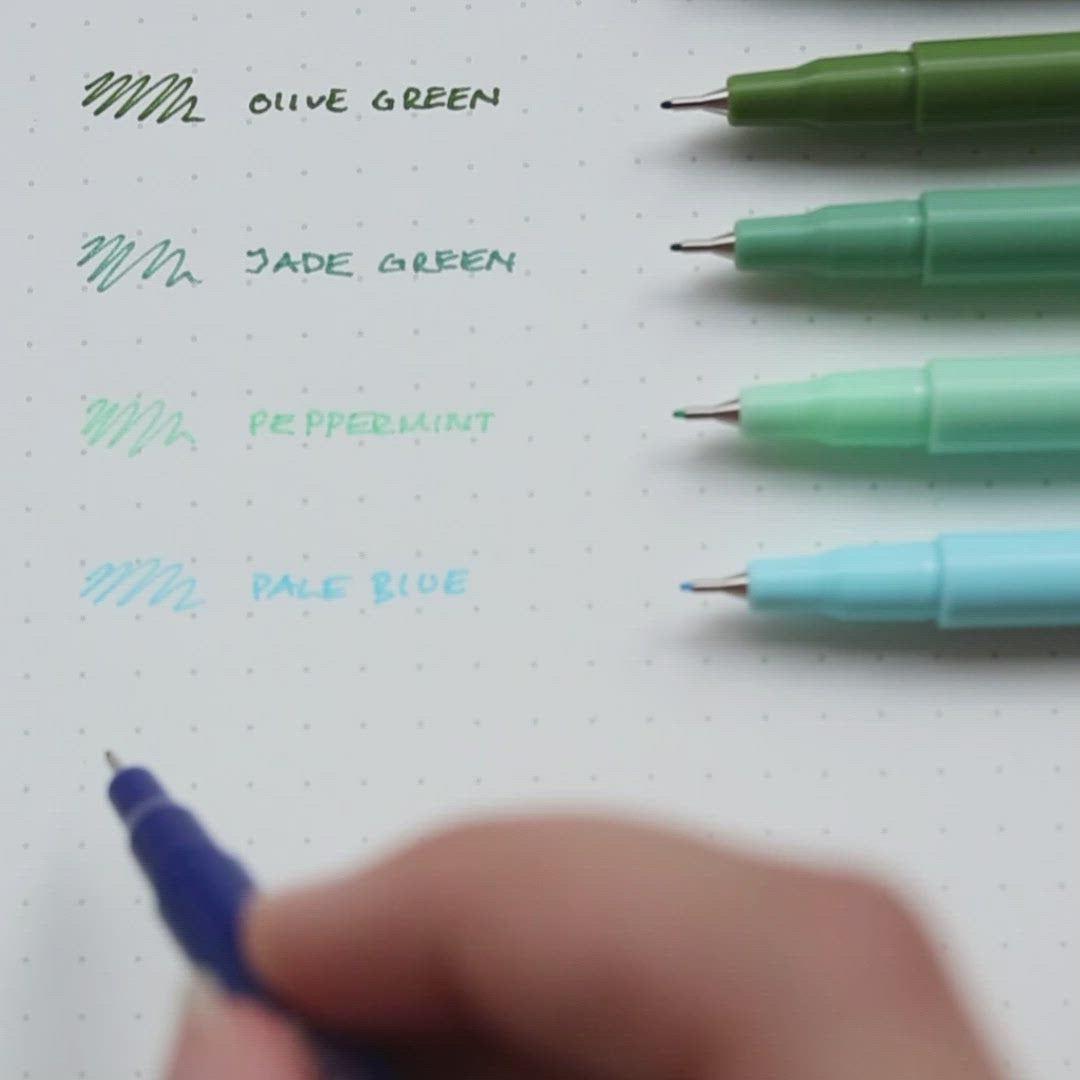 OLIVE GREEN
JADE GREEN
PEPPERMINT
PALE BLUE